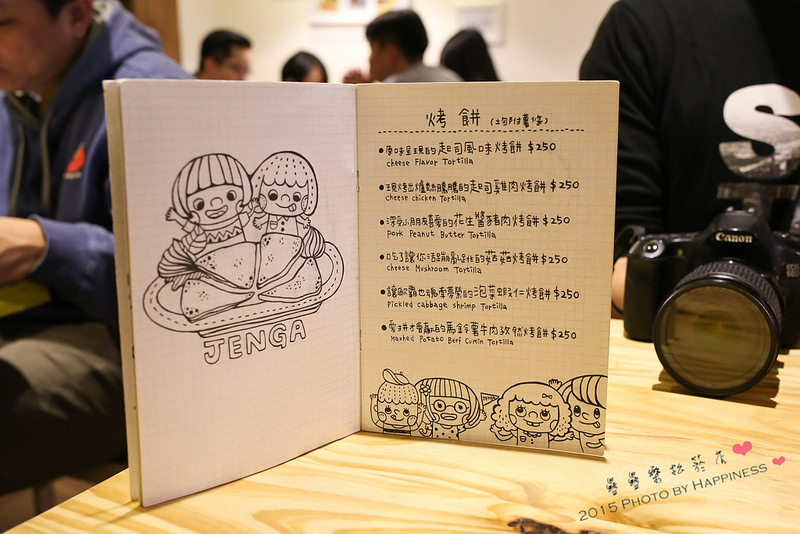 烤餅 (均附薯條)
•原味呈現的起司風味烤餅 $250
cheese Flavor Tortilla
•現烤出爐熱騰騰的起司雞肉烤餅 $250
cheese chicken Tortilla
•深受小朋友喜愛的花生醬豬肉烤餅 $250
Pork Peanut Butter Tortilla
•吃了讓你活蹦亂跳的菇菇烤餅 $250
cheese Mushroom Tortilla
•讓歐霸也瘋的泡菜蝦仁烤餅 $250
Pickled cabbage shrimp Tortilla
•愛拼才會贏的馬鈴薯牛肉孜然烤餅 $250
Mashed Potato Beef Cumin Tortilla
JENGA
Canon
S
疊疊樂松菸店
2015 PHOTO BY HAPPINESS